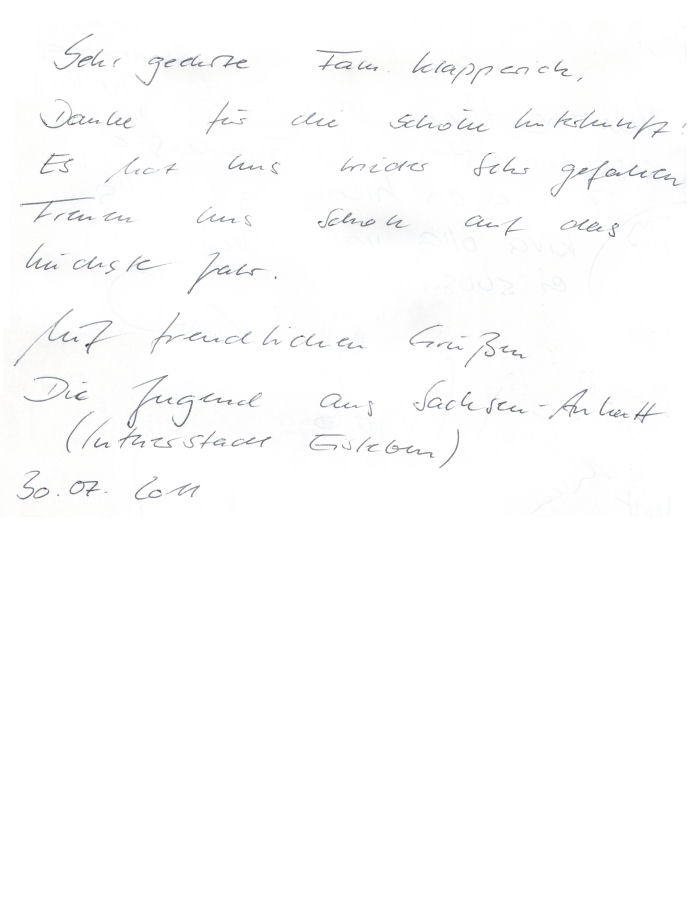 Sehr geehrte Fam. Klapperich,
Danke für die schöne Unterkunft!
Es hat uns wieder sehr gefallen
Freuen uns schon auf das
nächste Jahr.
Mit freundlichen Grüßen
Die Jugend aus Sachsen-Anhalt
(Lutherstadt Eisleben)
30.07.2011